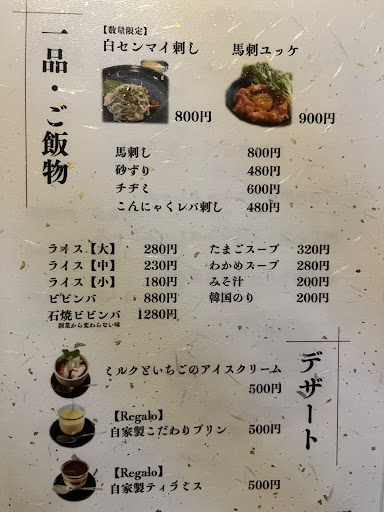 一品・ご飯物
【数量限定】
白センマイ刺し 800円
馬刺ユッケ 900円
馬刺し 800円
砂ずり 480円
チヂミ 600円
こんにゃくレバ刺し 480円
ライス【大】 280円
ライス【中】 230円
ライス【小】 180円
ビビンバ 880円
石焼ビビンバ 1280円
創業から変わらない味
たまごスープ 320円
わかめスープ 280円
みそ汁 200円
韓国のり 200円
デザート
ミルクといちごのアイスクリーム
500円
【Regalo】
自家製こだわりプリン 500円
【Regalo】
自家製ティラミス 500円